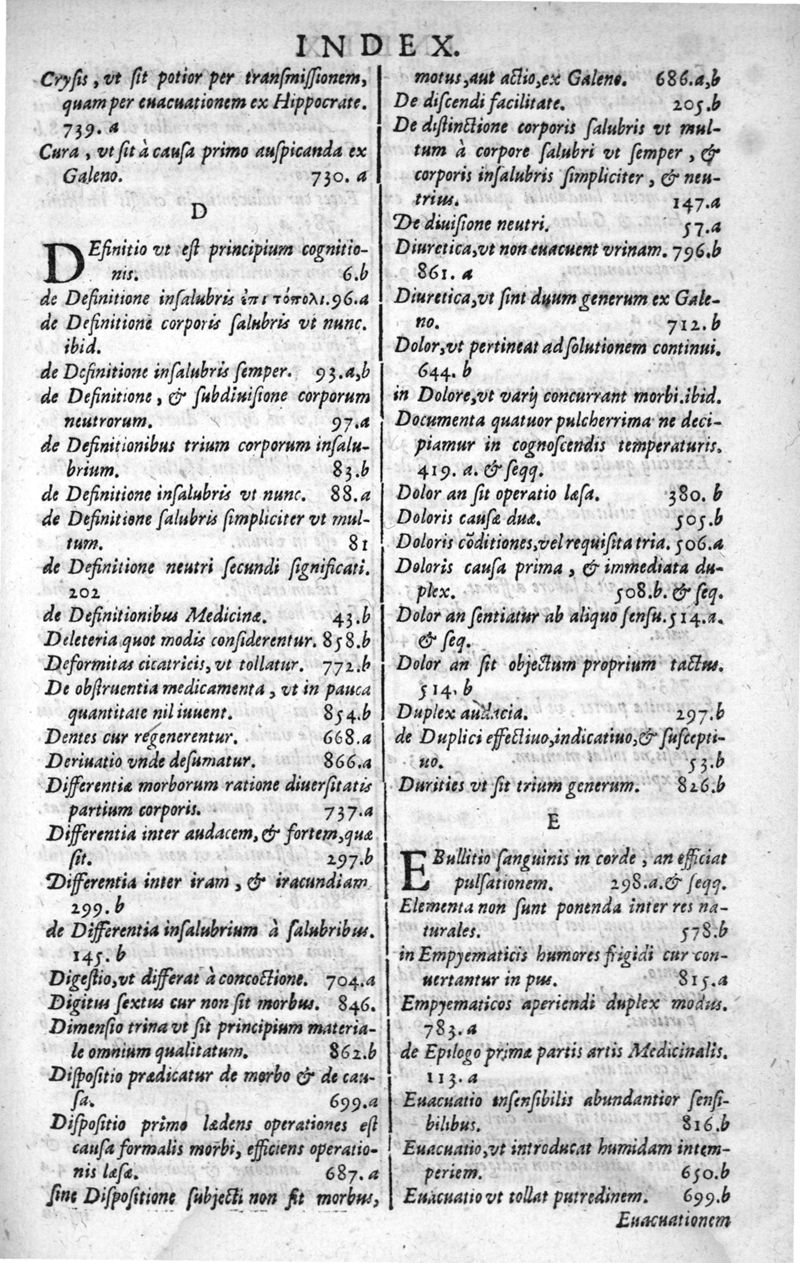 INDEX.
Crysis, vt sit potior per transmissionem,
quam per euacuationem ex Hippocrate.
739. a
Cura, vt sit à causa primo auspicanda ex
Galeno. 730. a
D
DEfinitio vt est principium cognitio-
nis. 6.b
de Definitione insalubris ἐπι τόπολι. 96.a
de Definitione corporis salubris vt nunc.
ibid.
de Definitione insalubris semper. 93.a,b
de Definitione, & subdiuisione corporum
neutrorum. 97.a
de Definitionibus trium corporum insalu-
brium. 83.b
de Definitione insalubris vt nunc. 88.a
de Definitione salubris simpliciter vt mul-
tum. 81
de Definitione neutri secundi significati.
202
de Definitionibus Medicinæ. 43.b
Deleteria quot modis considerentur. 858.b
Deformitas cicatricis, vt tollatur. 772.b
De obstruentia medicamenta, vt in pauca
quantitate nil iuuent. 854.b
Dentes cur regenerentur. 668.a
Deriuatio vnde desumatur. 866.a
Differentiæ morborum ratione diuersitatis
partium corporis. 737.a
Differentia inter audacem, & fortem, quæ
sit. 297.b
Differentia inter iram, & iracundiam
299. b
de Differentia insalubrium à salubribus.
145. b
Digestio, vt differat à concoctione. 704.a
Digitus sextus cur non sit morbus. 846.
Dimensio trina vt sit principium materia-
le omnium qualitatum. 862.b
Dispositio prædicatur de morbo & de cau-
sa. 699.a
Dispositio primo lædens operationes est
causa formalis morbi, efficiens operatio-
nis læsæ. 687. a
sine Dispositione subjecti non fit morbus,
motus, aut actio, ex Galeno. 686.a,b
De discendi facilitate. 205.b
De distinctione corporis salubris vt mul-
tum à corpore salubri vt semper, &
corporis insalubris simpliciter, & neu-
trius. 147.a
De diuisione neutri. 57.a
Diuretica, vt non euacuent vrinam. 796.b
861. a
Diuretica, vt sint duum generum ex Gale-
no. 712.b
Dolor, vt pertineat ad solutionem continui.
644. b
in Dolore, vt varij concurrant morbi. ibid.
Documenta quatuor pulcherrima ne deci-
piamur in cognoscendis temperaturis.
419. a. & seqq.
Dolor an sit operatio læsa. 380. b
Doloris causæ duæ. 505.b
Doloris cōditiones, vel requisita tria. 506.a
Doloris causa prima, & immediata du-
plex. 508.b. & seq.
Dolor an sentiatur ab aliquo sensu. 514.a.
& seq.
Dolor an sit objectum proprium tactus.
514. b
Duplex audacia. 297.b
de Duplici effectiuo, indicatiuo, & suscepti-
uo. 53.b
Durities vt sit trium generum. 826.b
E
EBullitio sanguinis in corde, an efficiat
pulsationem. 298.a. & seqq.
Elementa non sunt ponenda inter res na-
turales. 578.b
in Empyematicis humores frigidi cur con-
uertantur in pus. 815.a
Empyematicos aperiendi duplex modus.
783. a
de Epilogo primæ partis artis Medicinalis.
113. a
Euacuatio insensibilis abundantior sensi-
bilibus. 816.b
Euacuatio, vt introducat humidam intem-
periem. 650.b
Euacuatio vt tollat putredinem. 699.b
Euacuationem